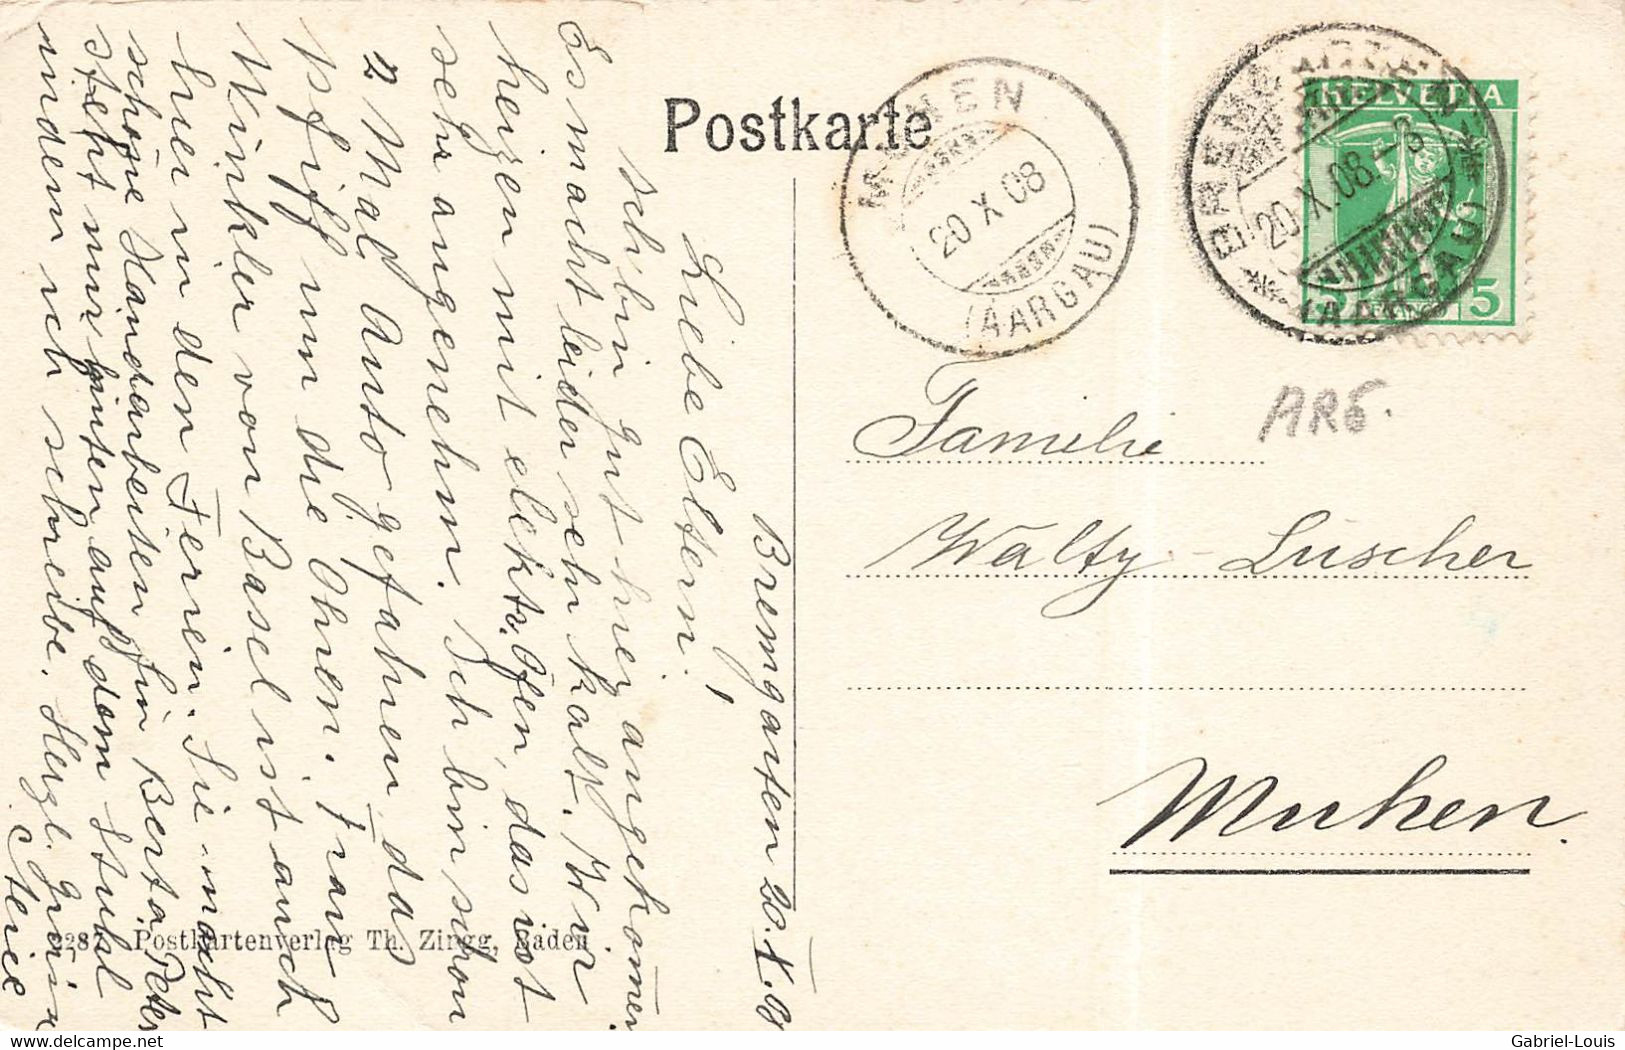 Postkarte
MUHEN
20 X 08
(AARGAU)
BREMGARTEN
20. X. 08. - 8
(AARGAU)
HELVETIA
5
ARG.
Familie
Wälty - Lüscher
Muhen.
Bremgarten 20. X. 08
Liebe Eltern!
Ich bin gut hier angekom̅en
Es macht leider sehr kalt. Wir
heizen mit elektr. Ofen, das ist
sehr angenehm. Ich bin schon
2 Mal Auto gefahren, das
pfiff um die Ohren. Frau
Winkler von Basel ist auch
hier in den Ferien. Sie macht
schöne Handarbeiten. Frl. Berta Peter
steht mir hinten auf dem Stuhl
indem ich schreibe. Herzl. Grüsse
2287 Postkartenverlag Th. Zingg, Baden
Gabriel-Louis